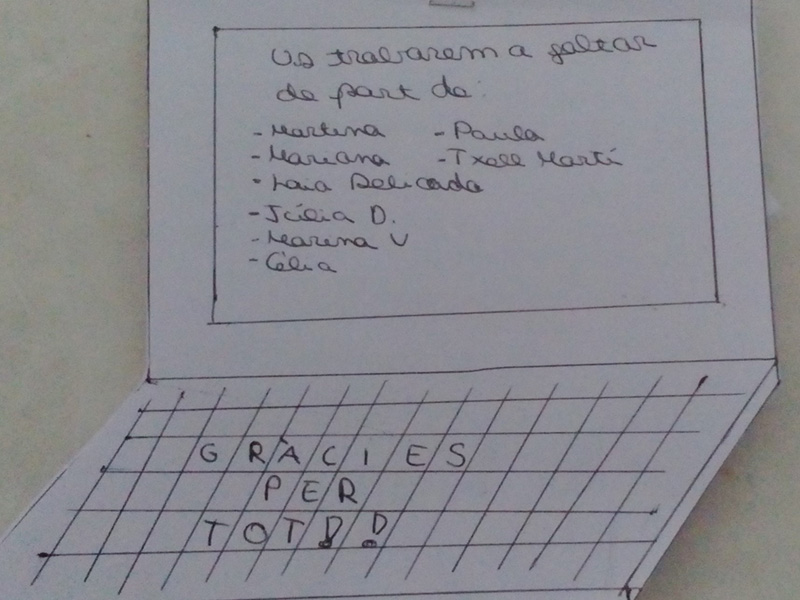 Us trabarem a faltar
de part de:
- Martina - Paula
- Mariana - Txell Martí
- Laia Delicada
- Júlia D.
- Marina V
- Cèlia
GRÀCIES
PER
TOT!!